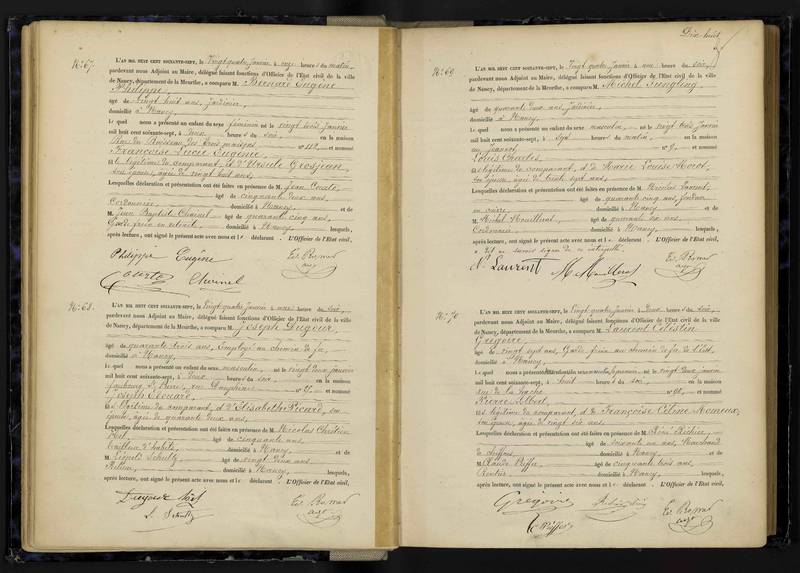 N°: 67.
L'AN MIL HUIT CENT SOIXANTE-SEPT, le Vingt quatre janvier à onze heures du matin,
pardevant nous Adjoint au Maire, délégué faisant fonctions d'Officier de l'Etat civil de la ville
de Nancy, département de la Meurthe, a comparu M.
Philippe,
âgé de vingt huit ans, jardinier,
domicilié à Nancy,
Lequel nous a présenté un enfant du sexe féminin né le vingt trois janvier
mil huit cent soixante-sept, à deux heures du soir, en la maison
Rue du Ruisseau des trois maisons, n° 112, et nommé
Françoise Lucie Eugénie,
légitime du comparant, et d'Ursule Grosjean,
son épouse, agée de vingt huit ans,
Lesquelles déclaration et présentation ont été faites en présence de M. Jean
Cordonnier, âgé de cinquante deux ans,
domicilié à Nancy, et de
M. Jean Baptiste Chainel âgé de quarante cinq ans,
domicilié à Nancy, lesquels,
après lecture, ont signé le présent acte avec nous et le déclarant. L'Officier de l'Etat civil,
Philippe Eugène
N°: 68.
L'AN MIL HUIT CENT SOIXANTE-SEPT, le Vingt quatre janvier à une heure du soir,
pardevant nous Adjoint au Maire, délégué faisant fonctions d'Officier de l'Etat civil de la ville
de Nancy, département de la Meurthe, a comparu M. Joseph Dugour,
âgé de quarante trois ans, Employé au chemin de fer,
domicilié à Nancy,
Lequel nous a présenté un enfant du sexe masculin né le vingt deux janvier
mil huit cent soixante-sept, à deux heures du soir, en la maison
faubourg St Pierre, n° et nommé
Joseph Edouard,
légitime du comparant, et d'Elisabeth Picard, son
épouse, agée de quarante deux ans,
Lesquelles déclaration et présentation ont été faites en présence de M. Nicolas Chrétien
Noël, âgé de cinquante ans,
tailleur d'habits, domicilié à Nancy, et de
M. Léopold Schultz âgé de vingt deux ans
domicilié à Nancy, lesquels,
après lecture, ont signé le présent acte avec nous et le déclarant. L'Officier de l'Etat civil,
L. Schultz
Dix huit
N°: 69
L'AN MIL HUIT CENT SOIXANTE-SEPT, le Vingt quatre janvier à une heure du soir,
pardevant nous Adjoint au Maire, délégué faisant fonctions d'Officier de l'Etat civil de la ville
de Nancy, département de la Meurthe, a comparu M. Michel Jungling,
âgé de quarante deux ans,
domicilié à Nancy,
Lequel nous a présenté un enfant du sexe masculin né le vingt trois janvier
mil huit cent soixante-sept, à sept heures du matin, en la maison
n° 9, et nommé
Louis Charles,
légitime du comparant, et de Marie Louise
son épouse, agée de trente sept ans,
Lesquelles déclaration et présentation ont été faites en présence de M. Nicolas Laurent,
âgé de quarante cinq ans,
domicilié à Nancy, et de
M. Michel âgé de quarante six ans
Cordonnier, domicilié à Nancy, lesquels,
après lecture, ont signé le présent acte avec nous et le déclarant. L'Officier de l'Etat civil,
N. Laurent
N°: 70
L'AN MIL HUIT CENT SOIXANTE-SEPT, le Vingt quatre janvier à deux heures du soir,
pardevant nous Adjoint au Maire, délégué faisant fonctions d'Officier de l'Etat civil de la ville
de Nancy, département de la Meurthe, a comparu M. Laurent Célestin
Grégoire,
âgé de vingt sept ans, Garde frein au chemin de fer de l'Est,
domicilié à Nancy,
Lequel nous a présenté un enfant du sexe masculin né le vingt deux janvier
mil huit cent soixante-sept, à huit heures du soir, en la maison
rue de la n° et nommé
Pierre Albert,
légitime du comparant, et de Françoise Céline
son épouse, agée de vingt six ans,
Lesquelles déclaration et présentation ont été faites en présence de M. René
âgé de soixante un ans, Marchand
de chiffons, domicilié à Nancy, et de
M. Claude âgé de cinquante trois ans,
Rentier, domicilié à Nancy, lesquels,
après lecture, ont signé le présent acte avec nous et le déclarant. L'Officier de l'Etat civil,
Grégoire